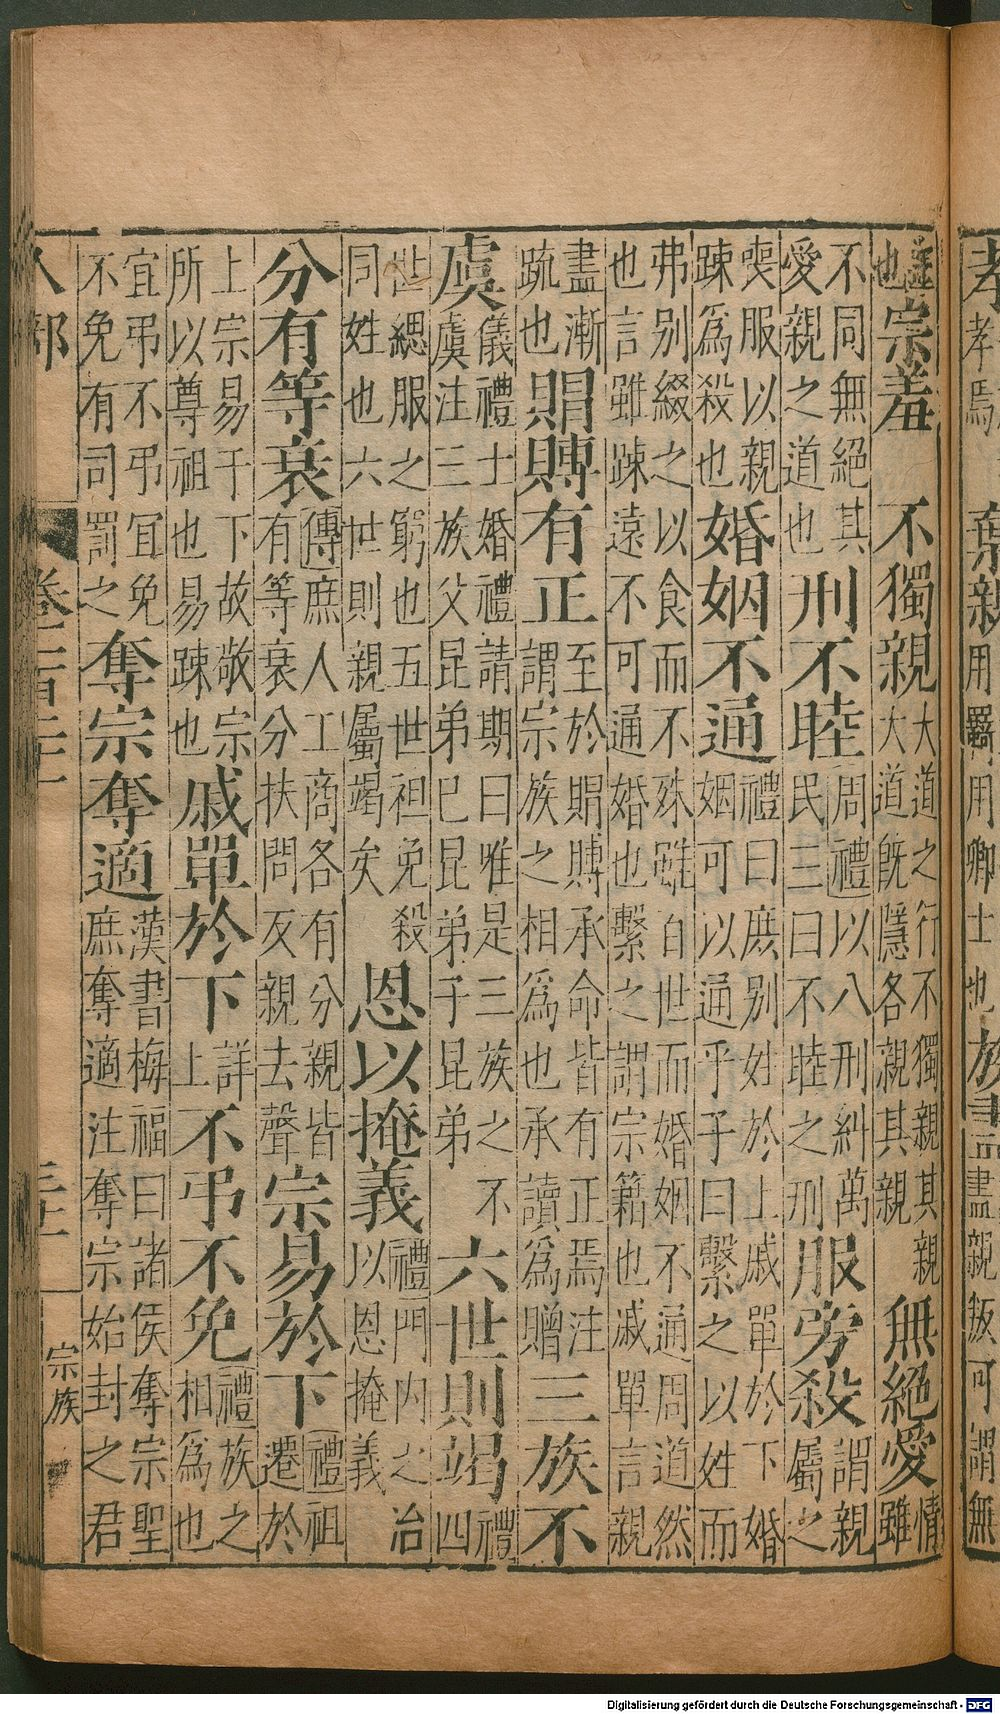 棄親用羈用卿士也
也宗羞 不獨親大道之行不獨親其親大道既隱各親其親無絕愛情雖
不同無絕其愛親之道也刑不睦周禮以八刑糾萬民三曰不睦之刑服旁殺謂親屬之
喪服以親踈爲殺也婚姻不通禮曰庶别姓於上戚單於下婚姻可以通乎子曰繫之以姓而
弗别綴之以食而不殊雖百世而婚姻不通周道然也言雖踈遠不可通婚也繫之謂宗籍也戚單言親
盡漸疏也賵賻有正至於賵賻承命皆有正焉注謂宗族之相爲也承讀爲贈三族不
虞儀禮士婚禮請期曰唯是三族之不虞注三族父昆弟巳昆弟子昆弟六世則竭禮四
世緦服之窮也五世袒免殺同姓也六世則親屬竭矣恩以掩義禮門内之治以恩掩義
分有等衰傳庶人工商各有分親皆有等衰分扶問反親去聲宗易於下禮祖遷於
上宗易于下故敬宗所以尊祖也易踈也戚單於下詳上不弔不免禮族之相爲也
宜弔不弔宜免不免有司罰之奪宗奪適漢書梅福曰諸侯奪宗聖庶奪適注奪宗始封之君
人部 宗族
Digitalisierung gefördert durch die Deutsche Forschungsgemeinschaft - DFG